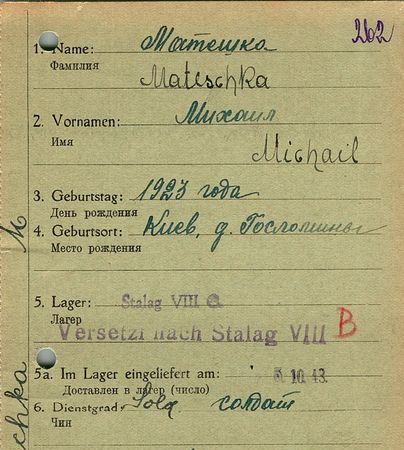 262
1. Name: Матешка
Фамилия
Mateschka
2. Vornamen: Михаил
Имя
Michail
3. Geburtstag: 1923 года
День рождения
4. Geburtsort: Киев, д. Гостомины
Место рождения
5. Lager: Stalag VIII
Лагер
Versetzt nach Stalag VIII B
5a. Im Lager eingeliefert am: 10. 43.
Доставлен в лагер (число)
6. Dienstgrad: Sold. солдат
Чин
chka